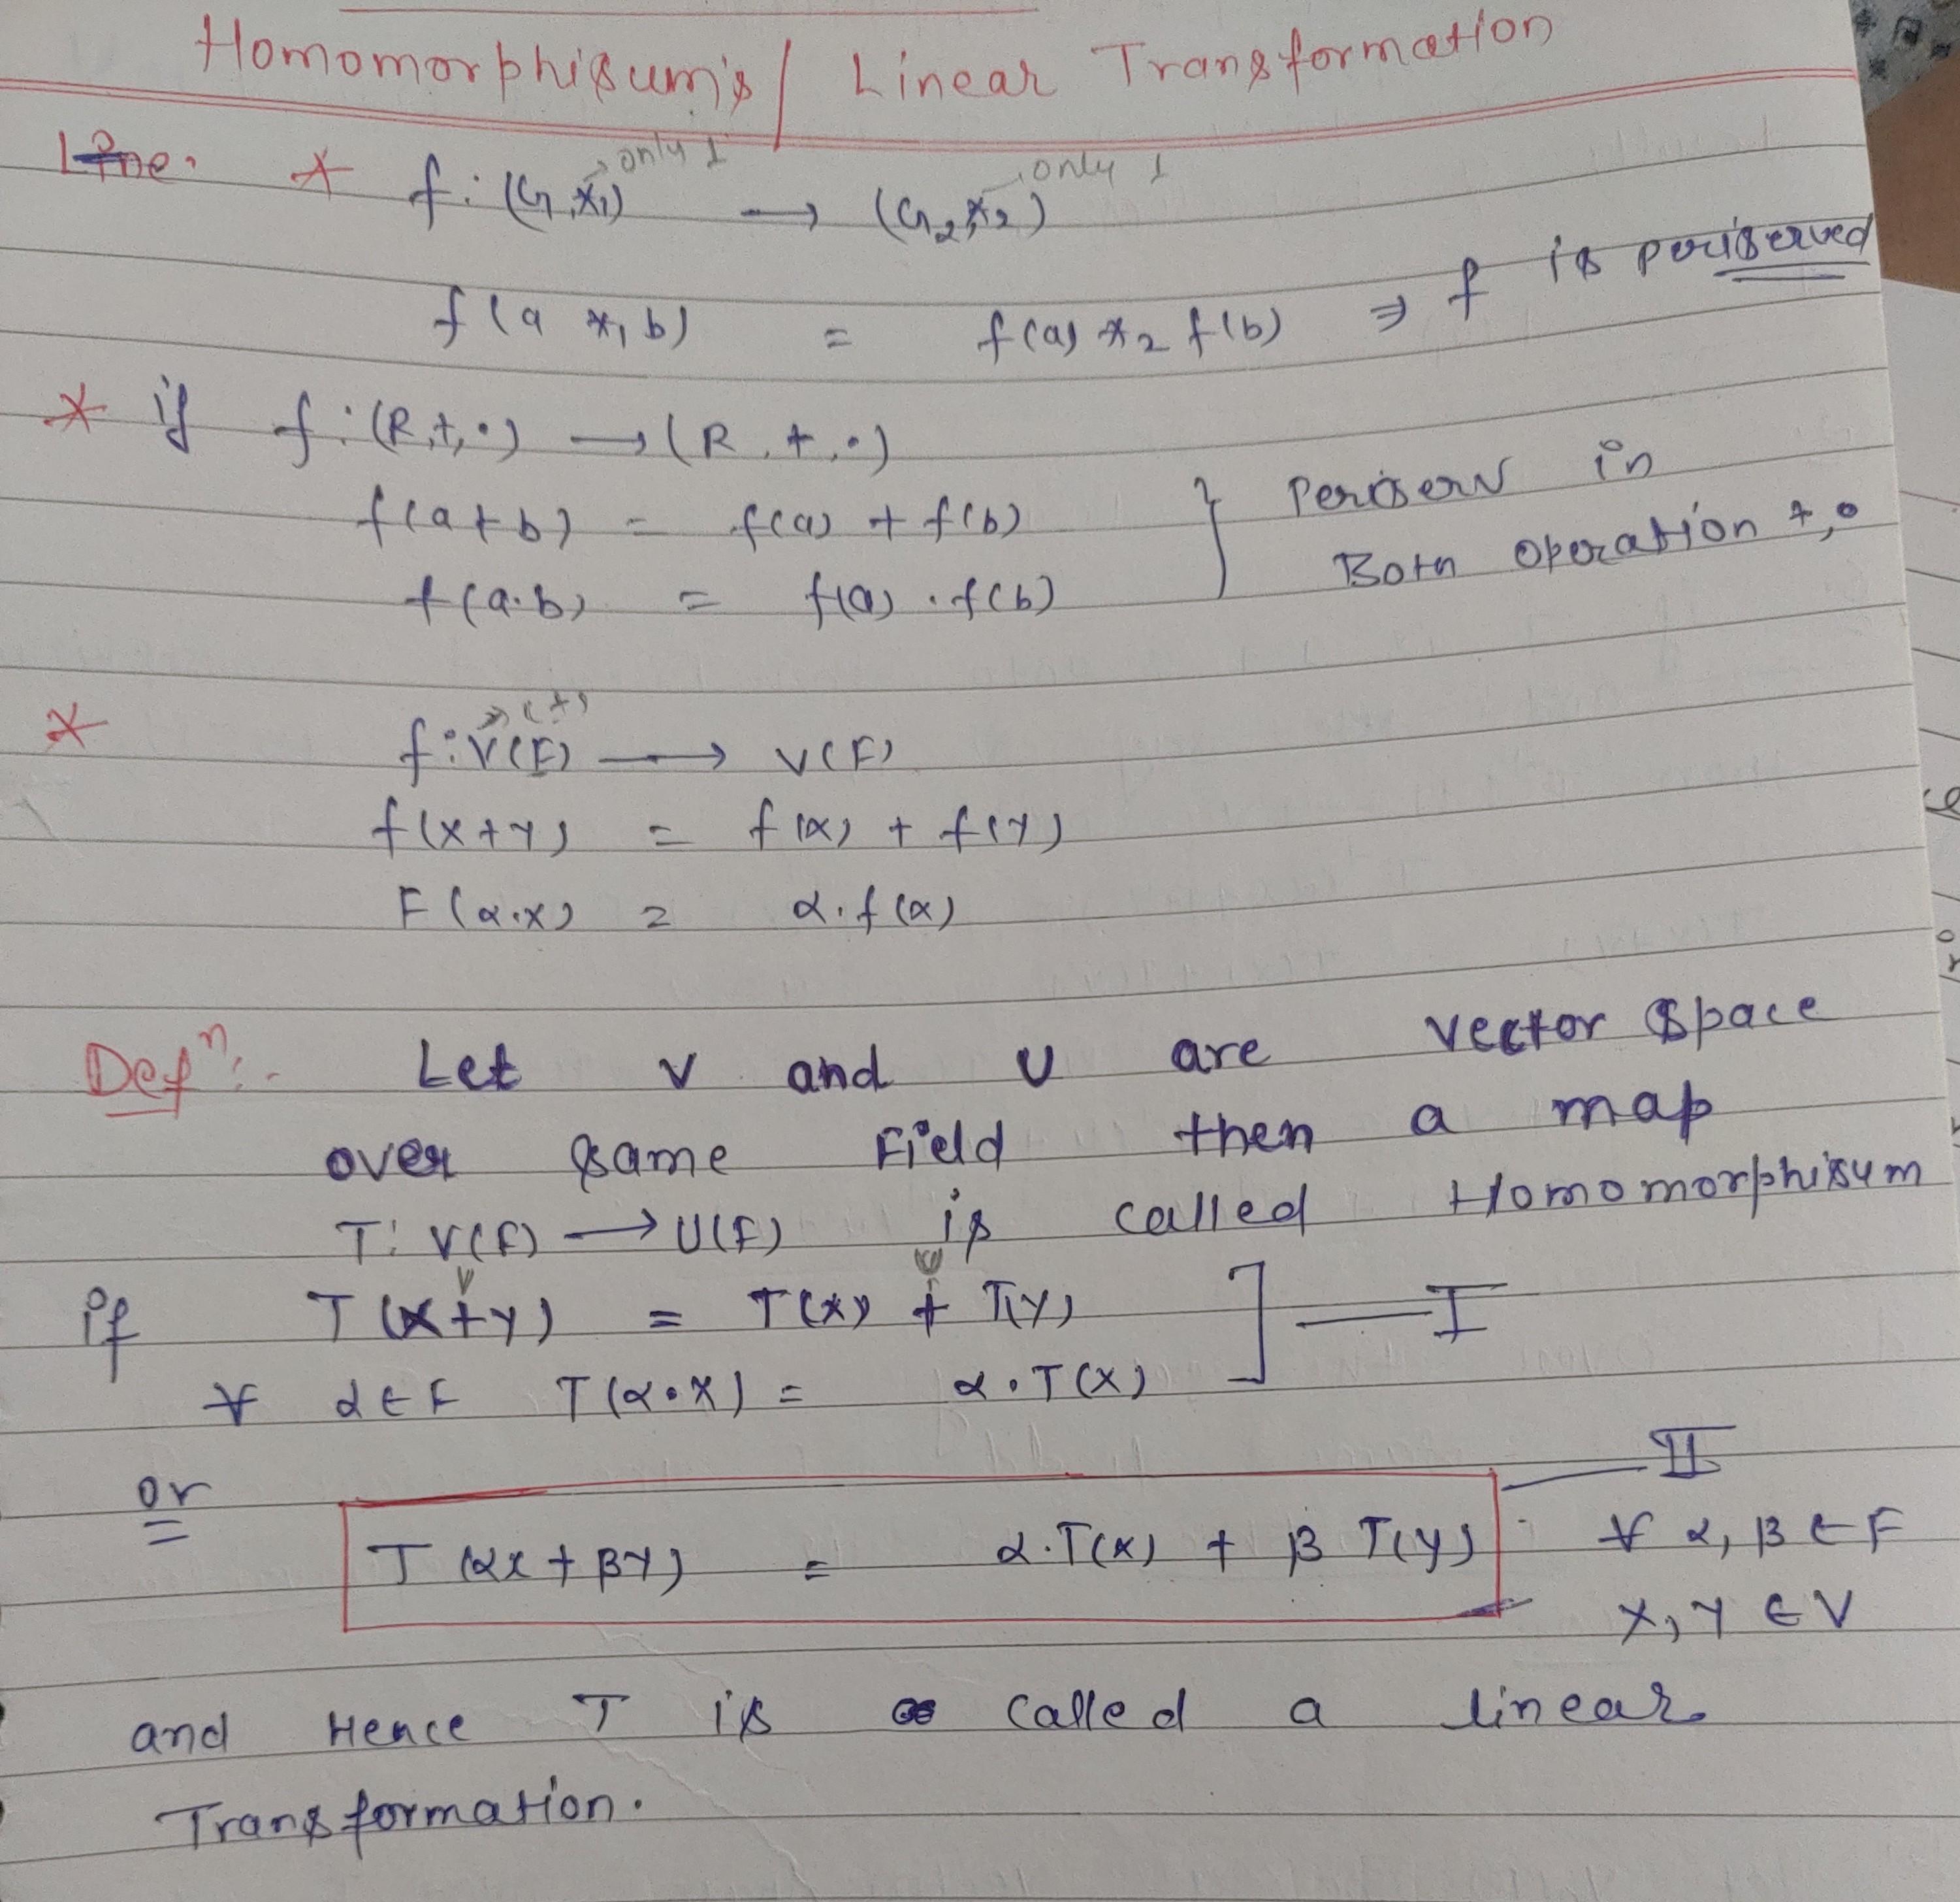 Homomorphisum's / Linear Transformation
Line. * f : (G, *1) → only 1 ⟶ (G2, *2) → only 1
f(a *1 b) = f(a) *2 f(b) ⇒ f is periserved
* if f : (R, +, •) ⟶ (R, +, •)
f(a+b) = f(a) + f(b) } Periserv in
f(a.b) = f(a) . f(b) Both operation +, •
* f : V(F) ⟶ V(F) (+)
f(x+y) = f(x) + f(y)
F(α.x) = α.f(x)
Defⁿ:- Let V and U are vector space
over same Field then a map
T: V(F) ⟶ U(F) is called Homomorphisum
if T(x+y) = T(x) + T(y) ] — I
∀ α ∈ F T(α•x) = α•T(x)
or II
T(αx + βy) = α.T(x) + β T(y) ∀ α, β ∈ F
x, y ∈ V
and Hence T is called a linear
Transformation.